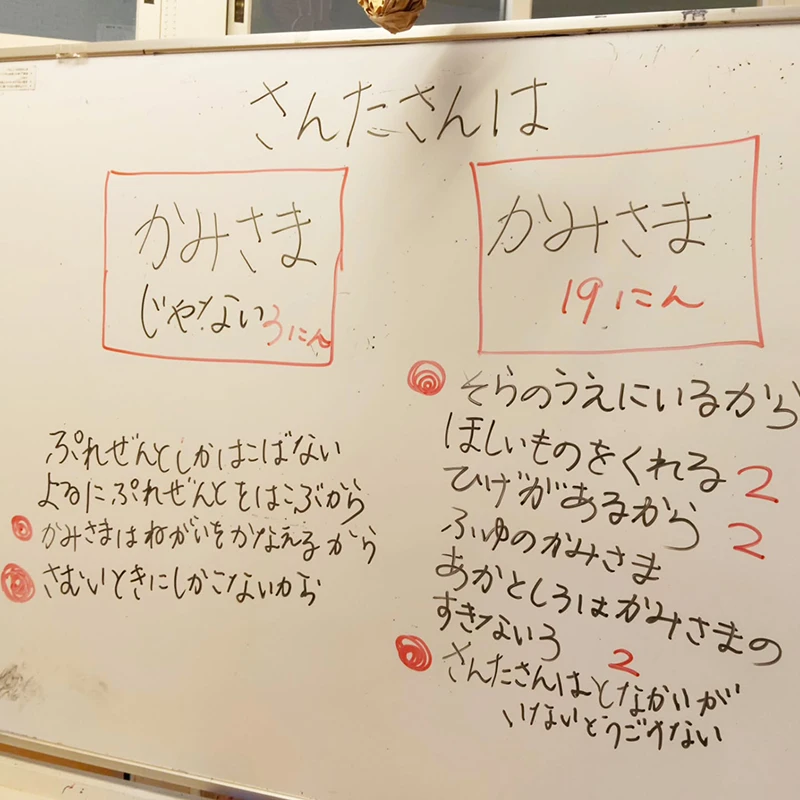 さんたさんは
かみさま
じゃない 3にん
ぷれぜんとしかはこばない
よるにぷれぜんとをはこぶから
かみさまはねがいをかなえるから
さむいときにしかこないから
かみさま
19にん
そらのうえにいるから
ほしいものをくれる 2
ひげがあるから 2
ふゆのかみさま
あかとしろはかみさまの
すきないろ 2
さんたさんはとなかいが
いないとうごけない